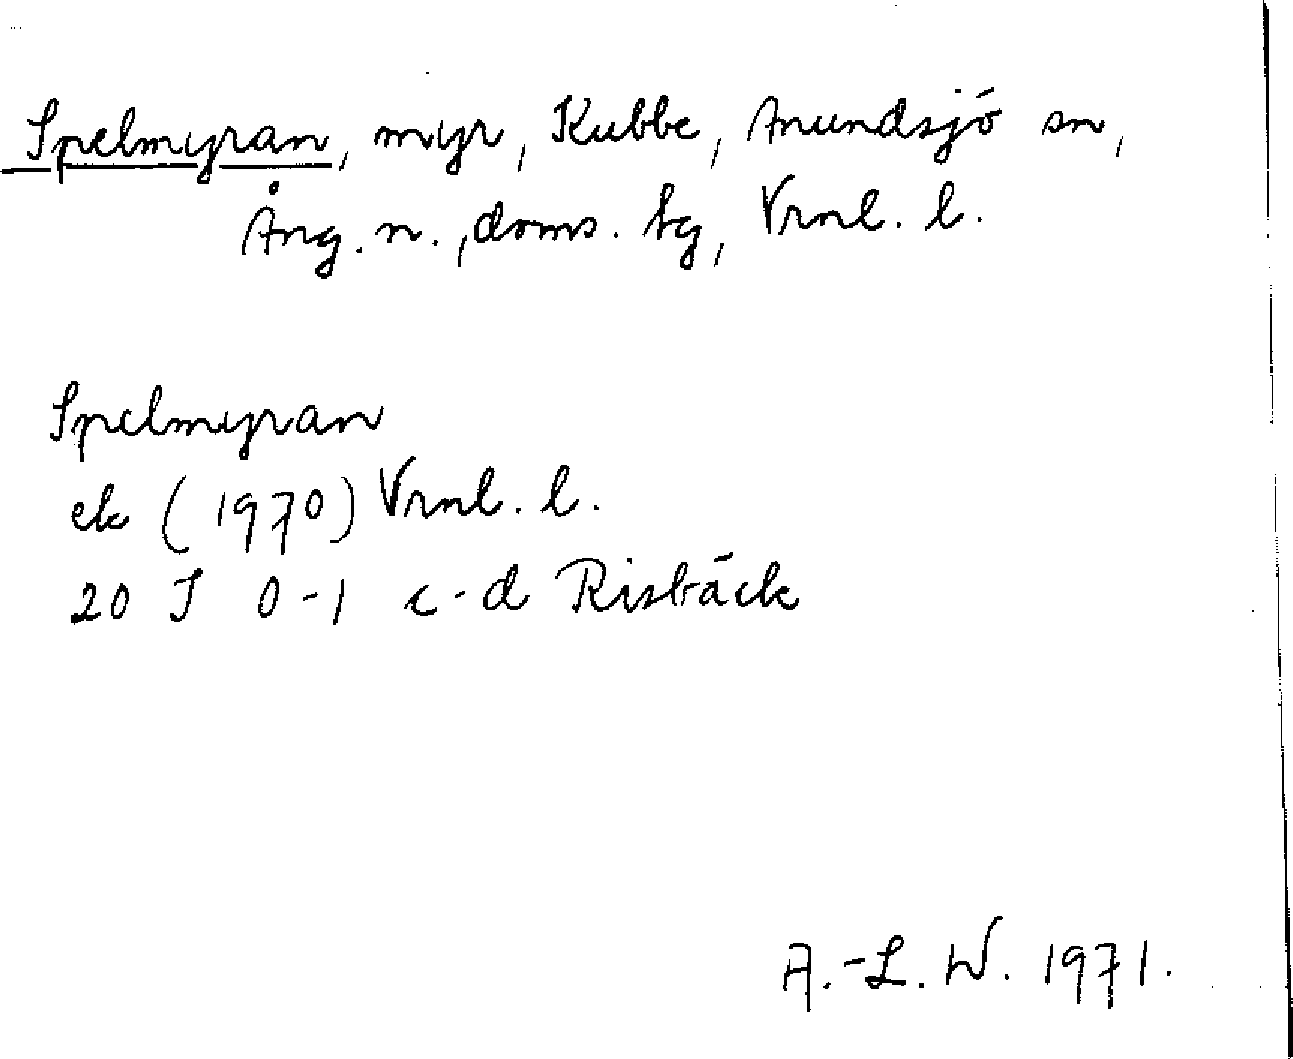 Spelmyran, myr, Kubbe, Anundsjö sn,
Ång. n., doms. tg, Vrnl. l.
Spelmyran
ek (1970) Vrnl. l.
20 J 0-1 c-d Risbäck
A.-L. W. 1971.